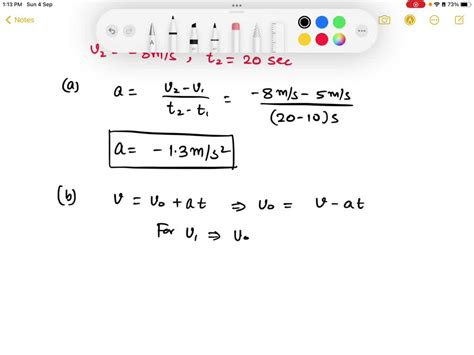 1:13 PM Sun 4 Sep
73%
Notes
v₂ = -8m/s , t₂ = 20 sec
(a) a = v₂-v₁ / t₂-t₁ = -8m/s - 5m/s / (20-10)s
a = -1.3m/s²
(b) v = v₀ + at ⇒ v₀ = v - at
For v₁ ⇒ v₀